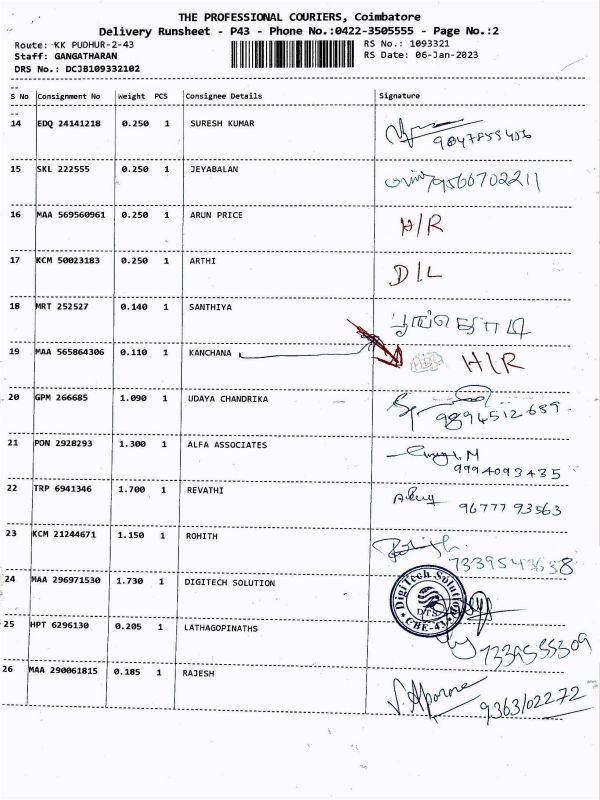 THE PROFESSIONAL COURIERS, Coimbatore
Delivery Runsheet - P43 - Phone No.:0422-3505555 - Page No.:2
Route: KK PUDHUR-2-43 RS No.: 1093321
Staff: GANGATHARAN RS Date: 06-Jan-2023
DRS No.: DCJB109332102
S No Consignment No Weight PCS Consignee Details Signature
14 EDQ 24141218 0.250 1 SURESH KUMAR
15 SKL 222555 0.250 1 JEYABALAN 9566702211
16 MAA 569560961 0.250 1 ARUN PRICE H/R
17 KCM 50023183 0.250 1 ARTHI D/L
18 MRT 252527 0.140 1 SANTHIYA
19 MAA 565864306 0.110 1 KANCHANA H/R
20 GPM 266685 1.090 1 UDAYA CHANDRIKA 9894512689
21 PON 2928293 1.300 1 ALFA ASSOCIATES 9994093435
22 TRP 6941346 1.700 1 REVATHI 96777 93563
23 KCM 21244671 1.150 1 ROHITH
24 MAA 296971530 1.730 1 DIGITECH SOLUTION DigiTech Solution D.T.S CBE-43
25 HPT 6296130 0.205 1 LATHAGOPINATHS
26 MAA 290061815 0.185 1 RAJESH 9363102272